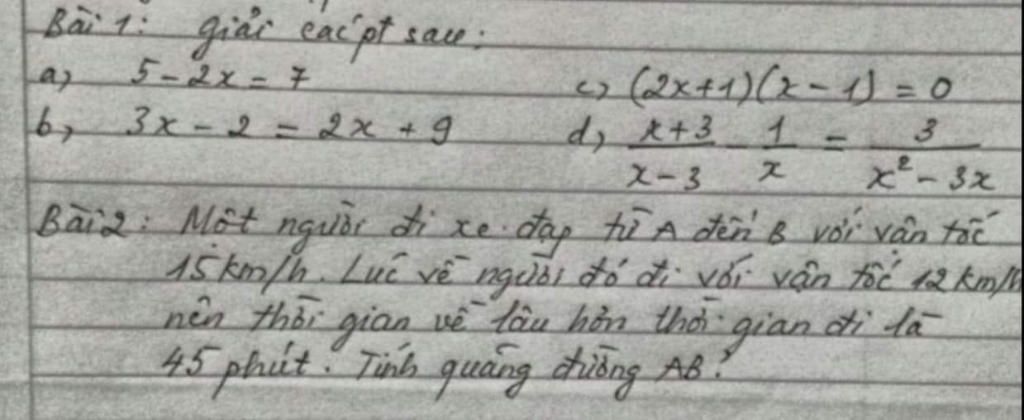 Bài 1: giải các pt sau:
a, 5 - 2x = 7
c, (2x+1)(x-1) = 0
b, 3x - 2 = 2x + 9
d, \frac{x+3}{x-3} - \frac{1}{x} = \frac{3}{x^2-3x}
Bài 2: Một người đi xe đạp từ A đến B với vận tốc
15km/h. Lúc về người đó đi với vận tốc 12km/h
nên thời gian về lâu hơn thời gian đi là
45 phút. Tính quãng đường AB?